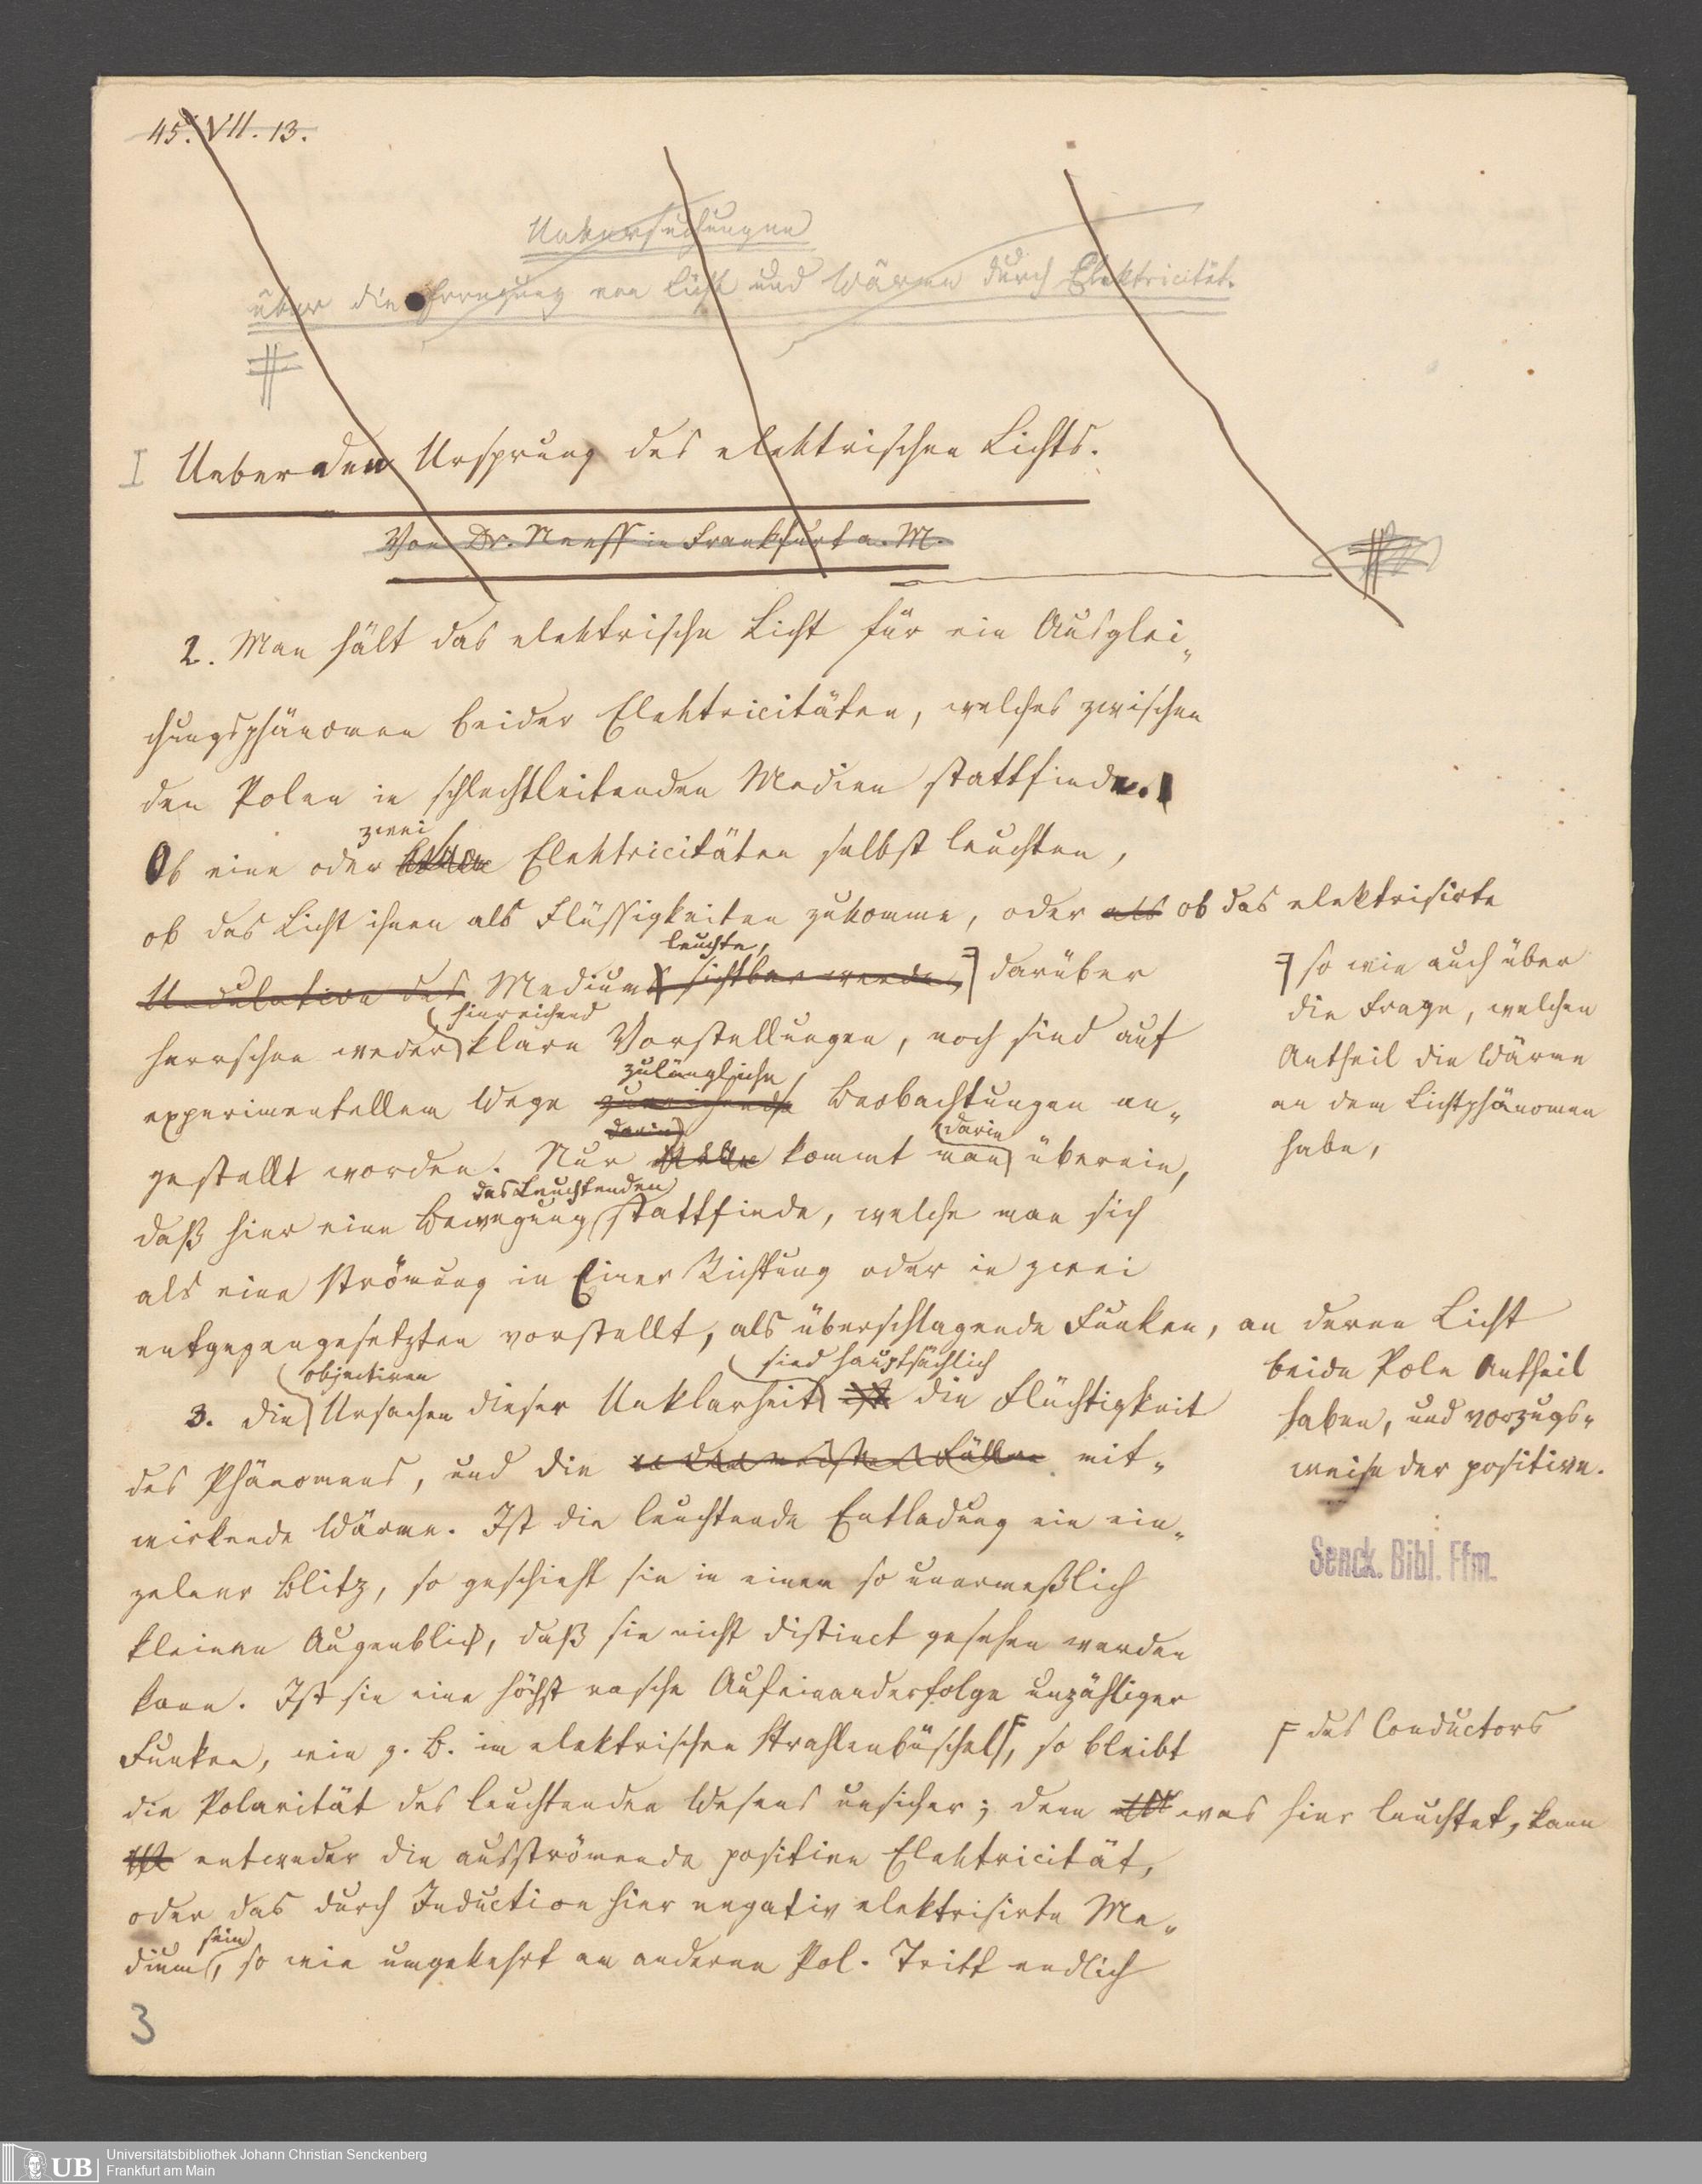 45. VII. 13.
Untersuchungen
über die Erregung von Licht und Wärme durch Elektricität.
I Ueber den Ursprung des elektrischen Lichts.
Von Dr. Neeff in Frankfurt a. M.
2. Man hält das elektrische Licht für ein Ausglei-
chungsphänomen beider Elektricitäten, welches zwischen
den Polen in schlechtleitenden Medien stattfinde.
zwei
Ob eine oder beide Elektricitäten selbst leuchten,
ob das Licht ihnen als Flüssigkeiten zukomme, oder als ob das elektrisirte
leuchte,
Undulation des Mediums sichtbar werde, darüber
hinreichend
herrschen weder klare Vorstellungen, noch sind auf
zulängliche
experimentellem Wege zureichende Beobachtungen an-
darin darin
gestellt worden. Nur kommt man überein,
des Leuchtenden
daß hier eine Bewegung stattfinde, welche man sich
als eine Strömung in Einer Richtung oder in zwei
entgegengesetzten vorstellt, als überschlagende Funken, an deren Licht
beide Pole Antheil
haben, und vorzugs-
weise der positive.
so wie auch über
die Frage, welchen
Antheil die Wärme
an dem Lichtphänomen
habe,
objectiven sind hauptsächlich
3. Die Ursachen dieser Unklarheit ist die Flüchtigkeit
des Phänomens, und die in den meisten Fällen mit-
wirkende Wärme. Ist die leuchtende Entladung ein ein-
zelner Blitz, so geschieht sie in einem so unermeßlich
kleinen Augenblick, daß sie nicht distinct gesehen werden
kann. Ist sie eine höchst rasche Aufeinanderfolge unzähliger
Funken, wie z. B. im elektrischen Strahlenbüschel, so bleibt
des Conductors
die Polarität des leuchtenden Wesens unsicher; denn was hier leuchtet, kann
ist entweder die ausströmende positive Elektricität,
oder das durch Induction hier negativ elektrisirte Me-
sein
dium, so wie umgekehrt am anderen Pol. Tritt endlich
3
Senck. Bibl. Ffm.
UB
Universitätsbibliothek Johann Christian Senckenberg
Frankfurt am Main